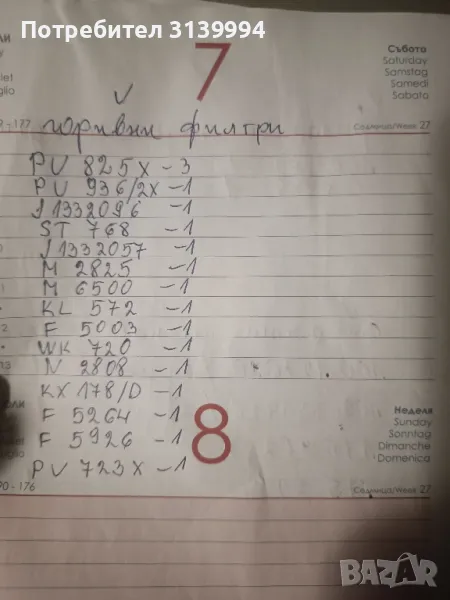 Потребител 3139994
7
Събота
Saturday
Samstag
Samedi
Sabato
- 177
Седмица/Week 27
горивни филтри
PU 825X - 3
PU 936/2X - 1
J1332096 - 1
ST 768 - 1
J1332057 - 1
M 2825 - 1
M 6500 - 1
KL 572 - 1
F 5003 - 1
WK 720 - 1
N 2808 - 1
KX 178/D - 1
F 5264 - 1
F 5926 - 1
PU 723X - 1
8
Неделя
Sunday
Sonntag
Dimanche
Domenica
- 176
Седмица/Week 27
BAZAR